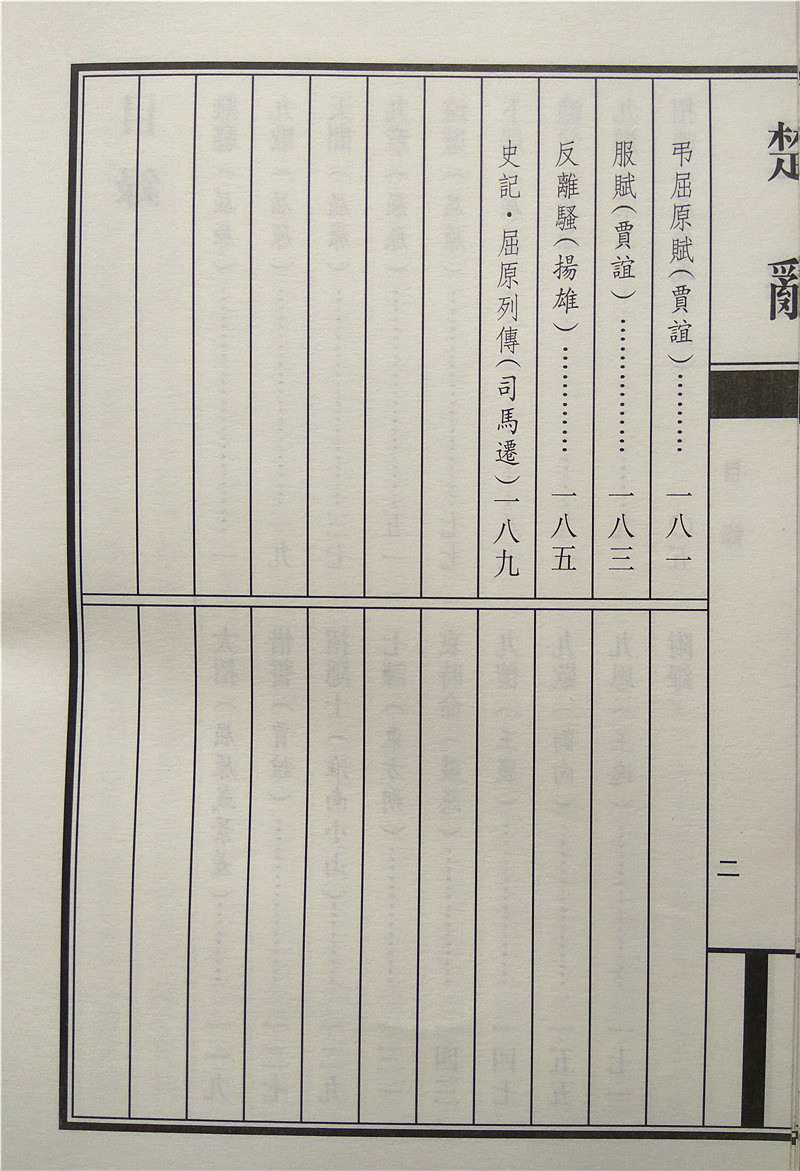 楚辭
二
弔屈原賦(賈誼)…………一八一
服賦(賈誼)…………………一八三
反離騷(揚雄)………………一八五
史記·屈原列傳(司馬遷)一八九